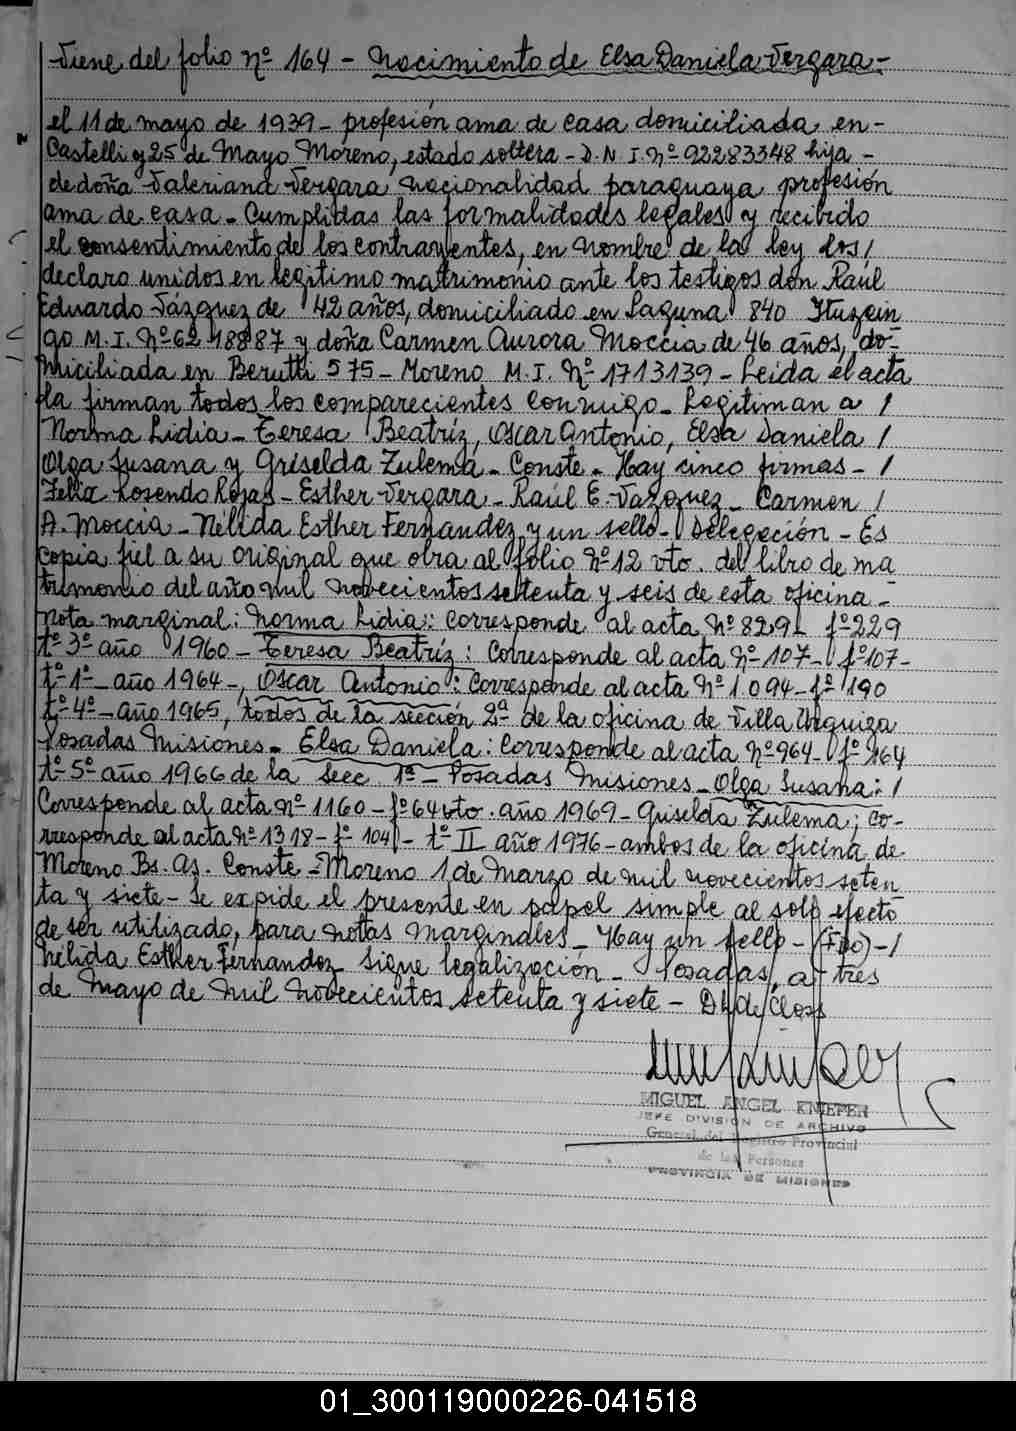 Viene del folio nº 164 - Nacimiento de Elsa Daniela Vergara -
el 11 de mayo de 1939 - profesión ama de casa domiciliada en -
Castelli y 25 de Mayo Moreno, estado soltera - D.N.I. Nº 92283348 hija -
de doña Valeriana Vergara nacionalidad paraguaya profesión
ama de casa - Cumplidas las formalidades legales y recibido
el consentimiento de los contrayentes, en nombre de la ley los /
declaro unidos en legítimo matrimonio ante los testigos don Raúl
Eduardo Vázquez de 42 años, domiciliado en Laguna 840 Ituzain
go M.I. Nº y doña Carmen Aurora Moccia de 46 años, do-
miciliada en Berutti 575 - Moreno M.I. Nº 1713139 - Leida el acta
la firman todos los comparecientes conmigo - Legitiman a /
Norma Lidia - Teresa Beatríz, Oscar Antonio, Elsa Daniela /
Olga Susana y Griselda Zulema - Conste - Hay cinco firmas - /
Felix Rosendo Rojas - Esther Vergara - Raúl E. Vazquez - Carmen /
A. Moccia - Nélida Esther Fernandez y un sello - Delegación - Es
copia fiel a su original que obra al folio Nº 12 vto. del libro de ma
trimonio del año mil novecientos setenta y seis de esta oficina -
Nota marginal: Norma Lidia: Corresponde al acta Nº 829 - fº 229
tº 3º año 1960 - Teresa Beatríz: Corresponde al acta Nº 107 - fº 107 -
tº 1º - año 1964 -, Oscar Antonio: Corresponde al acta Nº 1094 - fº 190
tº 4º - año 1965, todos de la sección 2ª de la oficina de Villa Urquiza
Posadas Misiones - Elsa Daniela: Corresponde al acta Nº 964 - fº 164
tº 5º año 1966 de la Secc. 1ª - Posadas Misiones - Olga Susana: /
Corresponde al acta nº 1160 - fº 64 vto. año 1969 - Griselda Zulema; Co-
rresponde al acta Nº 1318 - fº 104 - tº II año 1976 - ambos de la oficina de
Moreno Bs. As. Conste - Moreno 1 de Marzo de mil novecientos seten
ta y siete - Se expide el presente en papel simple al solo efecto
de ser utilizado, para notas marginales - Hay un sello - (FDO) - /
Nélida Esther Fernandez sigue legalización - Posadas, a tres
de Mayo de mil novecientos setenta y siete -
MIGUEL ANGEL KNIEPER
JEFE DIVISIÓN DE ARCHIVO
General del Registro Provincial
de las Personas
PROVINCIA DE MISIONES
01_300119000226-041518